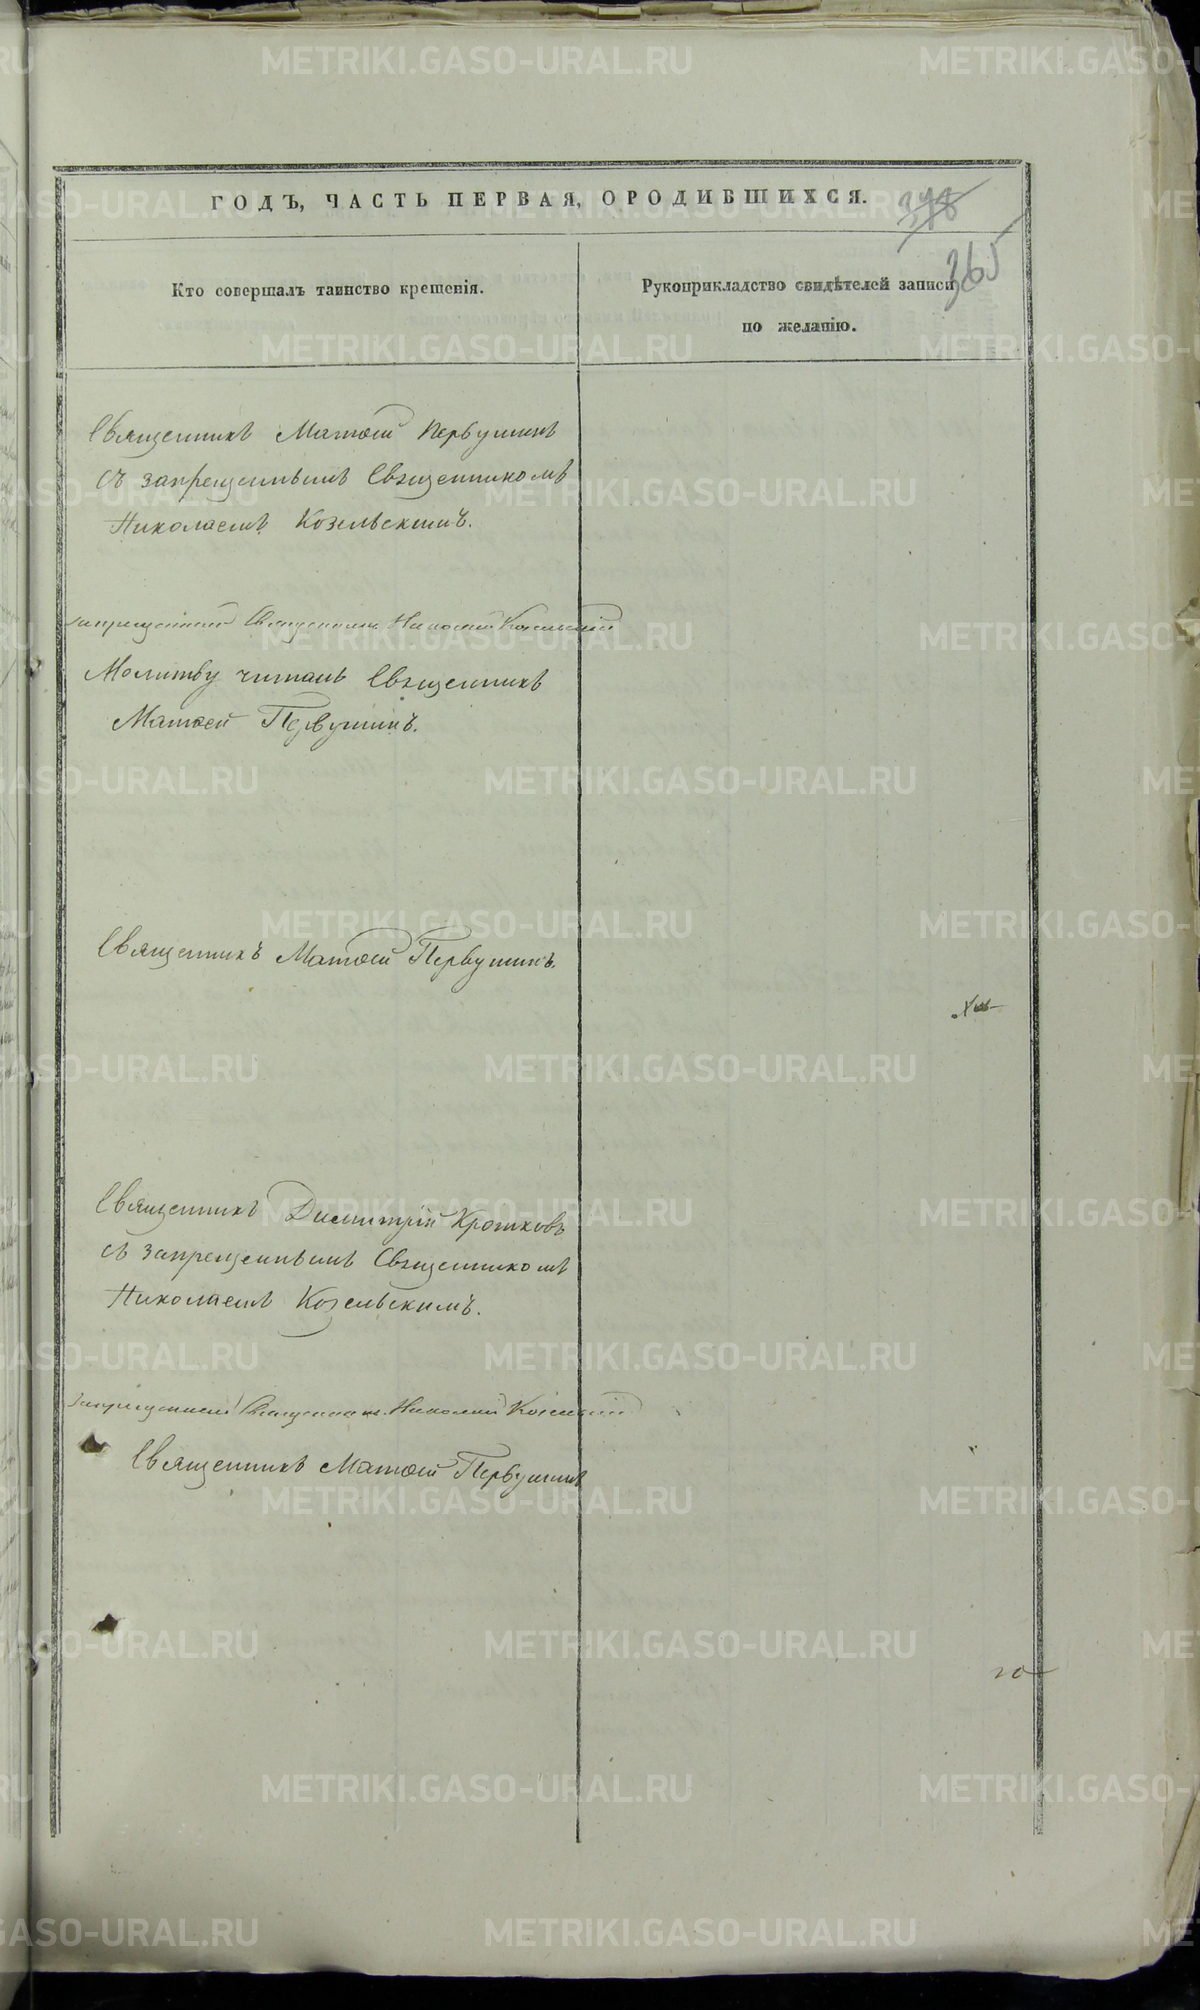 ГОДЪ, ЧАСТЬ ПЕРВАЯ, О РОДИВШИХСЯ.
365
Кто совершалъ таинство крещенія.
Рукоприкладство свидѣтелей записи
по желанію.
Священникъ Матѳей Первушинъ
съ запрещеннымъ Священникомъ
Николаемъ Козельскимъ.
запрещенный Священникъ Николай Козельскій
Молитву читалъ Священникъ
Матѳей Первушинъ.
Священникъ Матѳей Первушинъ.
Священникъ Димитрій Кротковъ
съ запрещеннымъ Священникомъ
Николаемъ Козельскимъ.
Запрещенный Священникъ Николай Козельскій
Священникъ Матѳей Первушинъ
METRIKI.GASO-URAL.RU